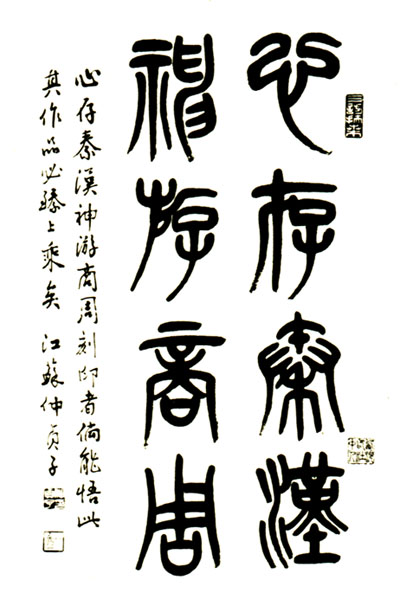 心存秦漢
神游商周
心存秦漢神游商周刻印者倘能悟此
其作品必臻上乘矣 江蘇仲貞子